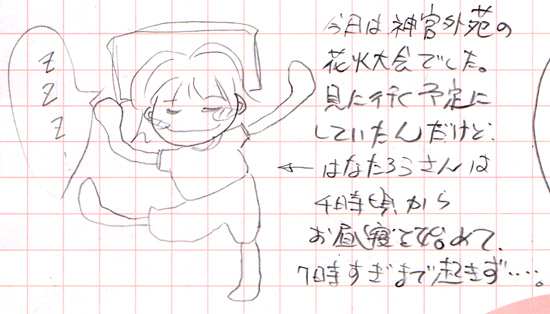 今日は神宮外苑の
花火大会でした。
見に行く予定に
していたんだけど、
← はなたろうさんは
4時頃から
お昼寝を始めて、
7時すぎまで起きず……。
Z
Z
Z